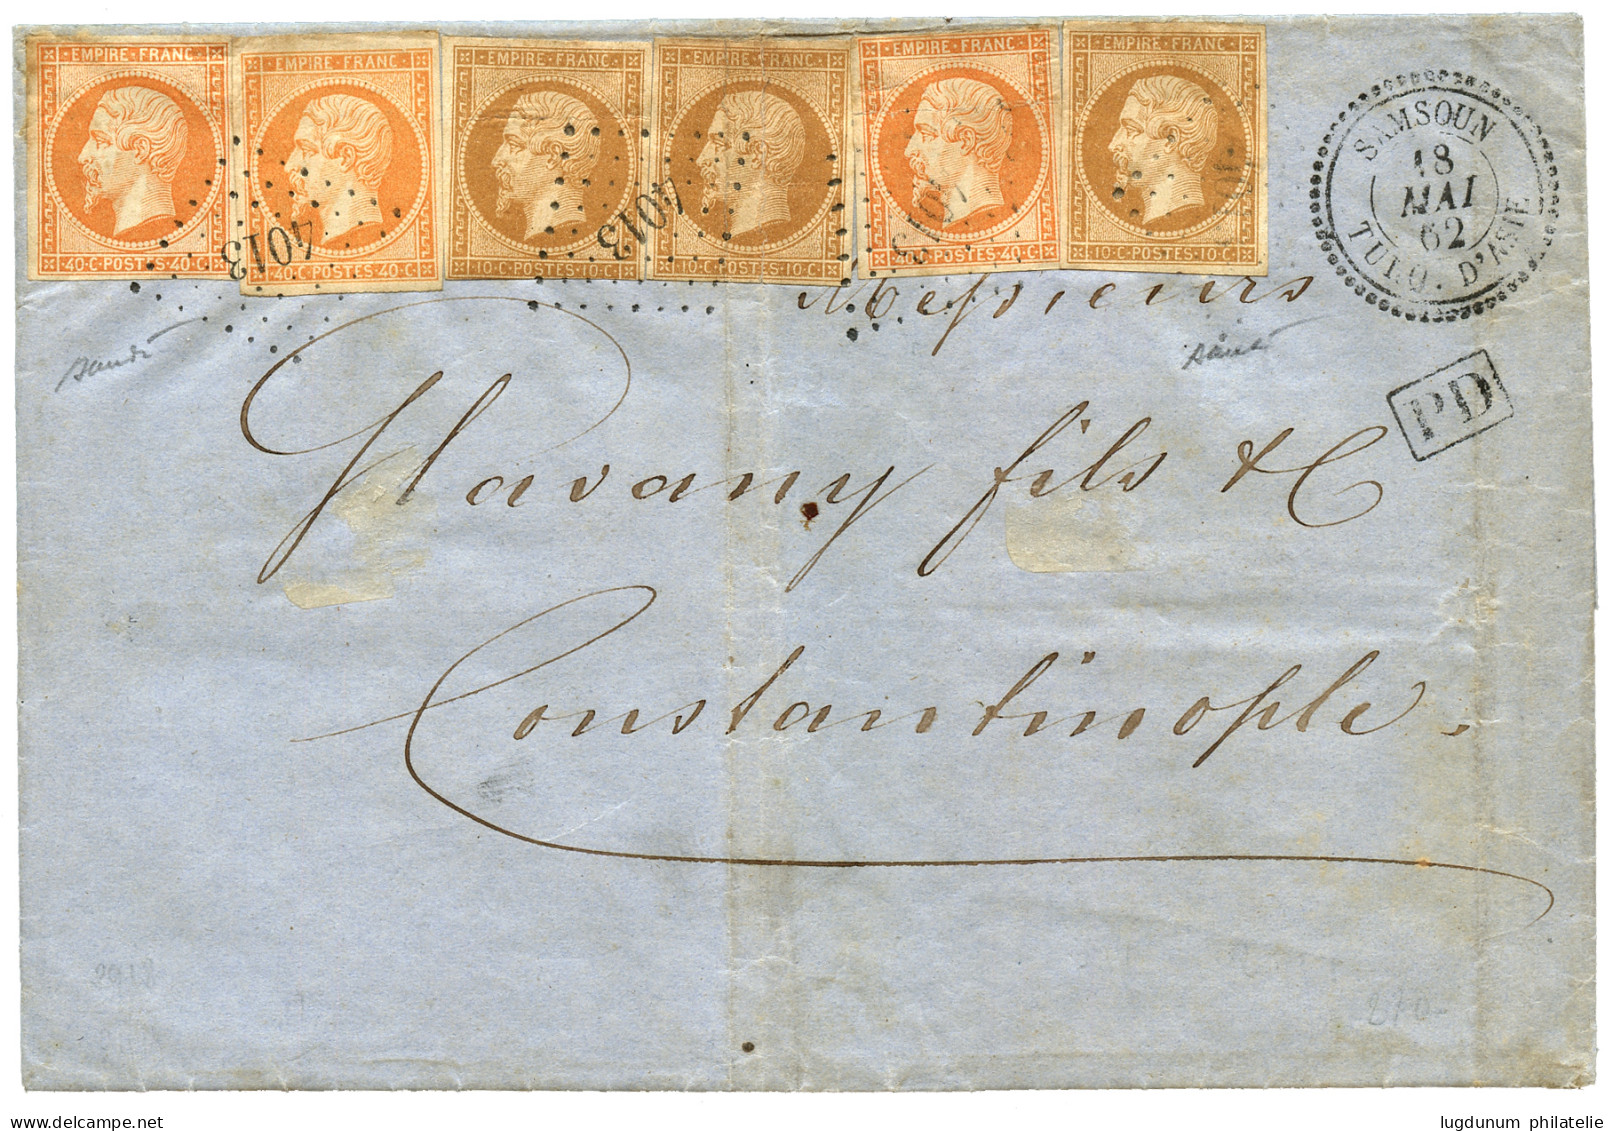 EMPIRE FRANC EMPIRE FRANC EMPIRE FRANC EMPIRE FRANC EMPIRE FRANC EMPIRE FRANC
40·C·POSTES·40·C· 40·C·POSTES·40·C· 10·C·POSTES·10·C· 10·C·POSTES·10·C· 40·C·POSTES·40·C· 10·C·POSTES·10·C·
4013 4013 4013
SAMSOUN
18
MAI
62
TURQ. D'ASIE
Messieurs
PD
Glavany fils & C
Constantinople.
2912
lugdunum philatelie